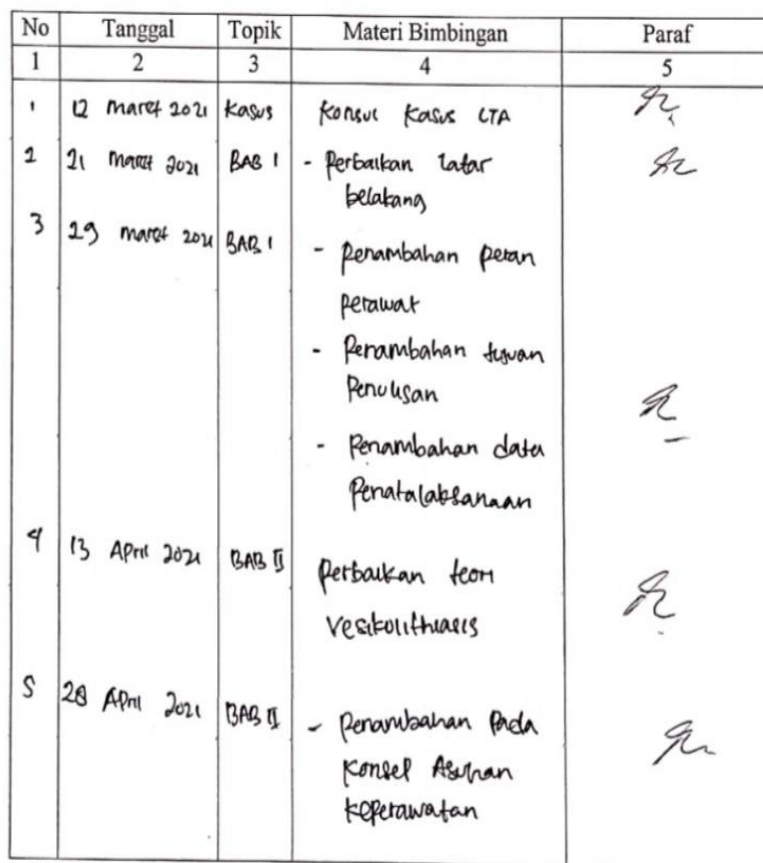 No Tanggal Topik Materi Bimbingan Paraf
1 2 3 4 5
1 12 Maret 2021 Kasus Konsul Kasus LTA
2 21 Maret 2021 BAB I - Perbaikan latar
belakang
3 29 Maret 2021 BAB I - Penambahan peran
perawat
- Penambahan tujuan
Penulisan
- Penambahan data
Penatalaksanaan
4 13 April 2021 BAB II Perbaikan teori
Vesikolithiasis
5 28 April 2021 BAB II - Penambahan Pada
Konsep Asuhan
Keperawatan